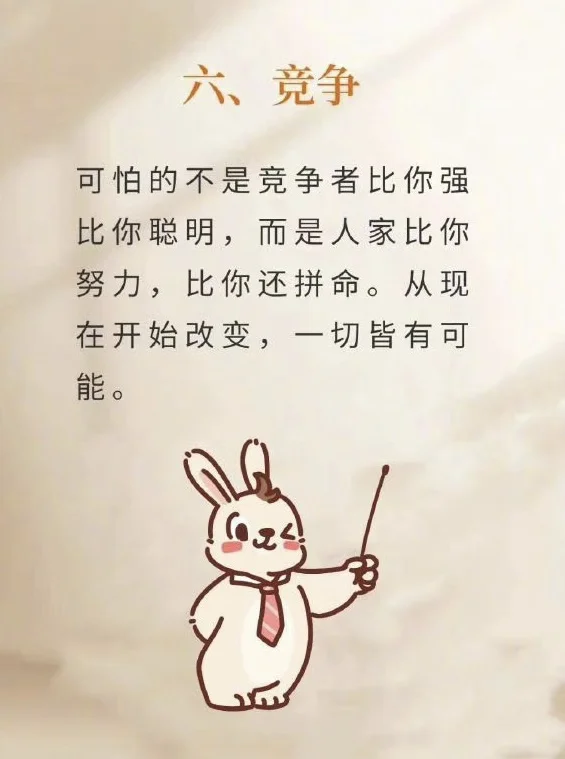 六、竞争
可怕的不是竞争者比你强
比你聪明，而是人家比你
努力，比你还拼命。从现
在开始改变，一切皆有可
能。